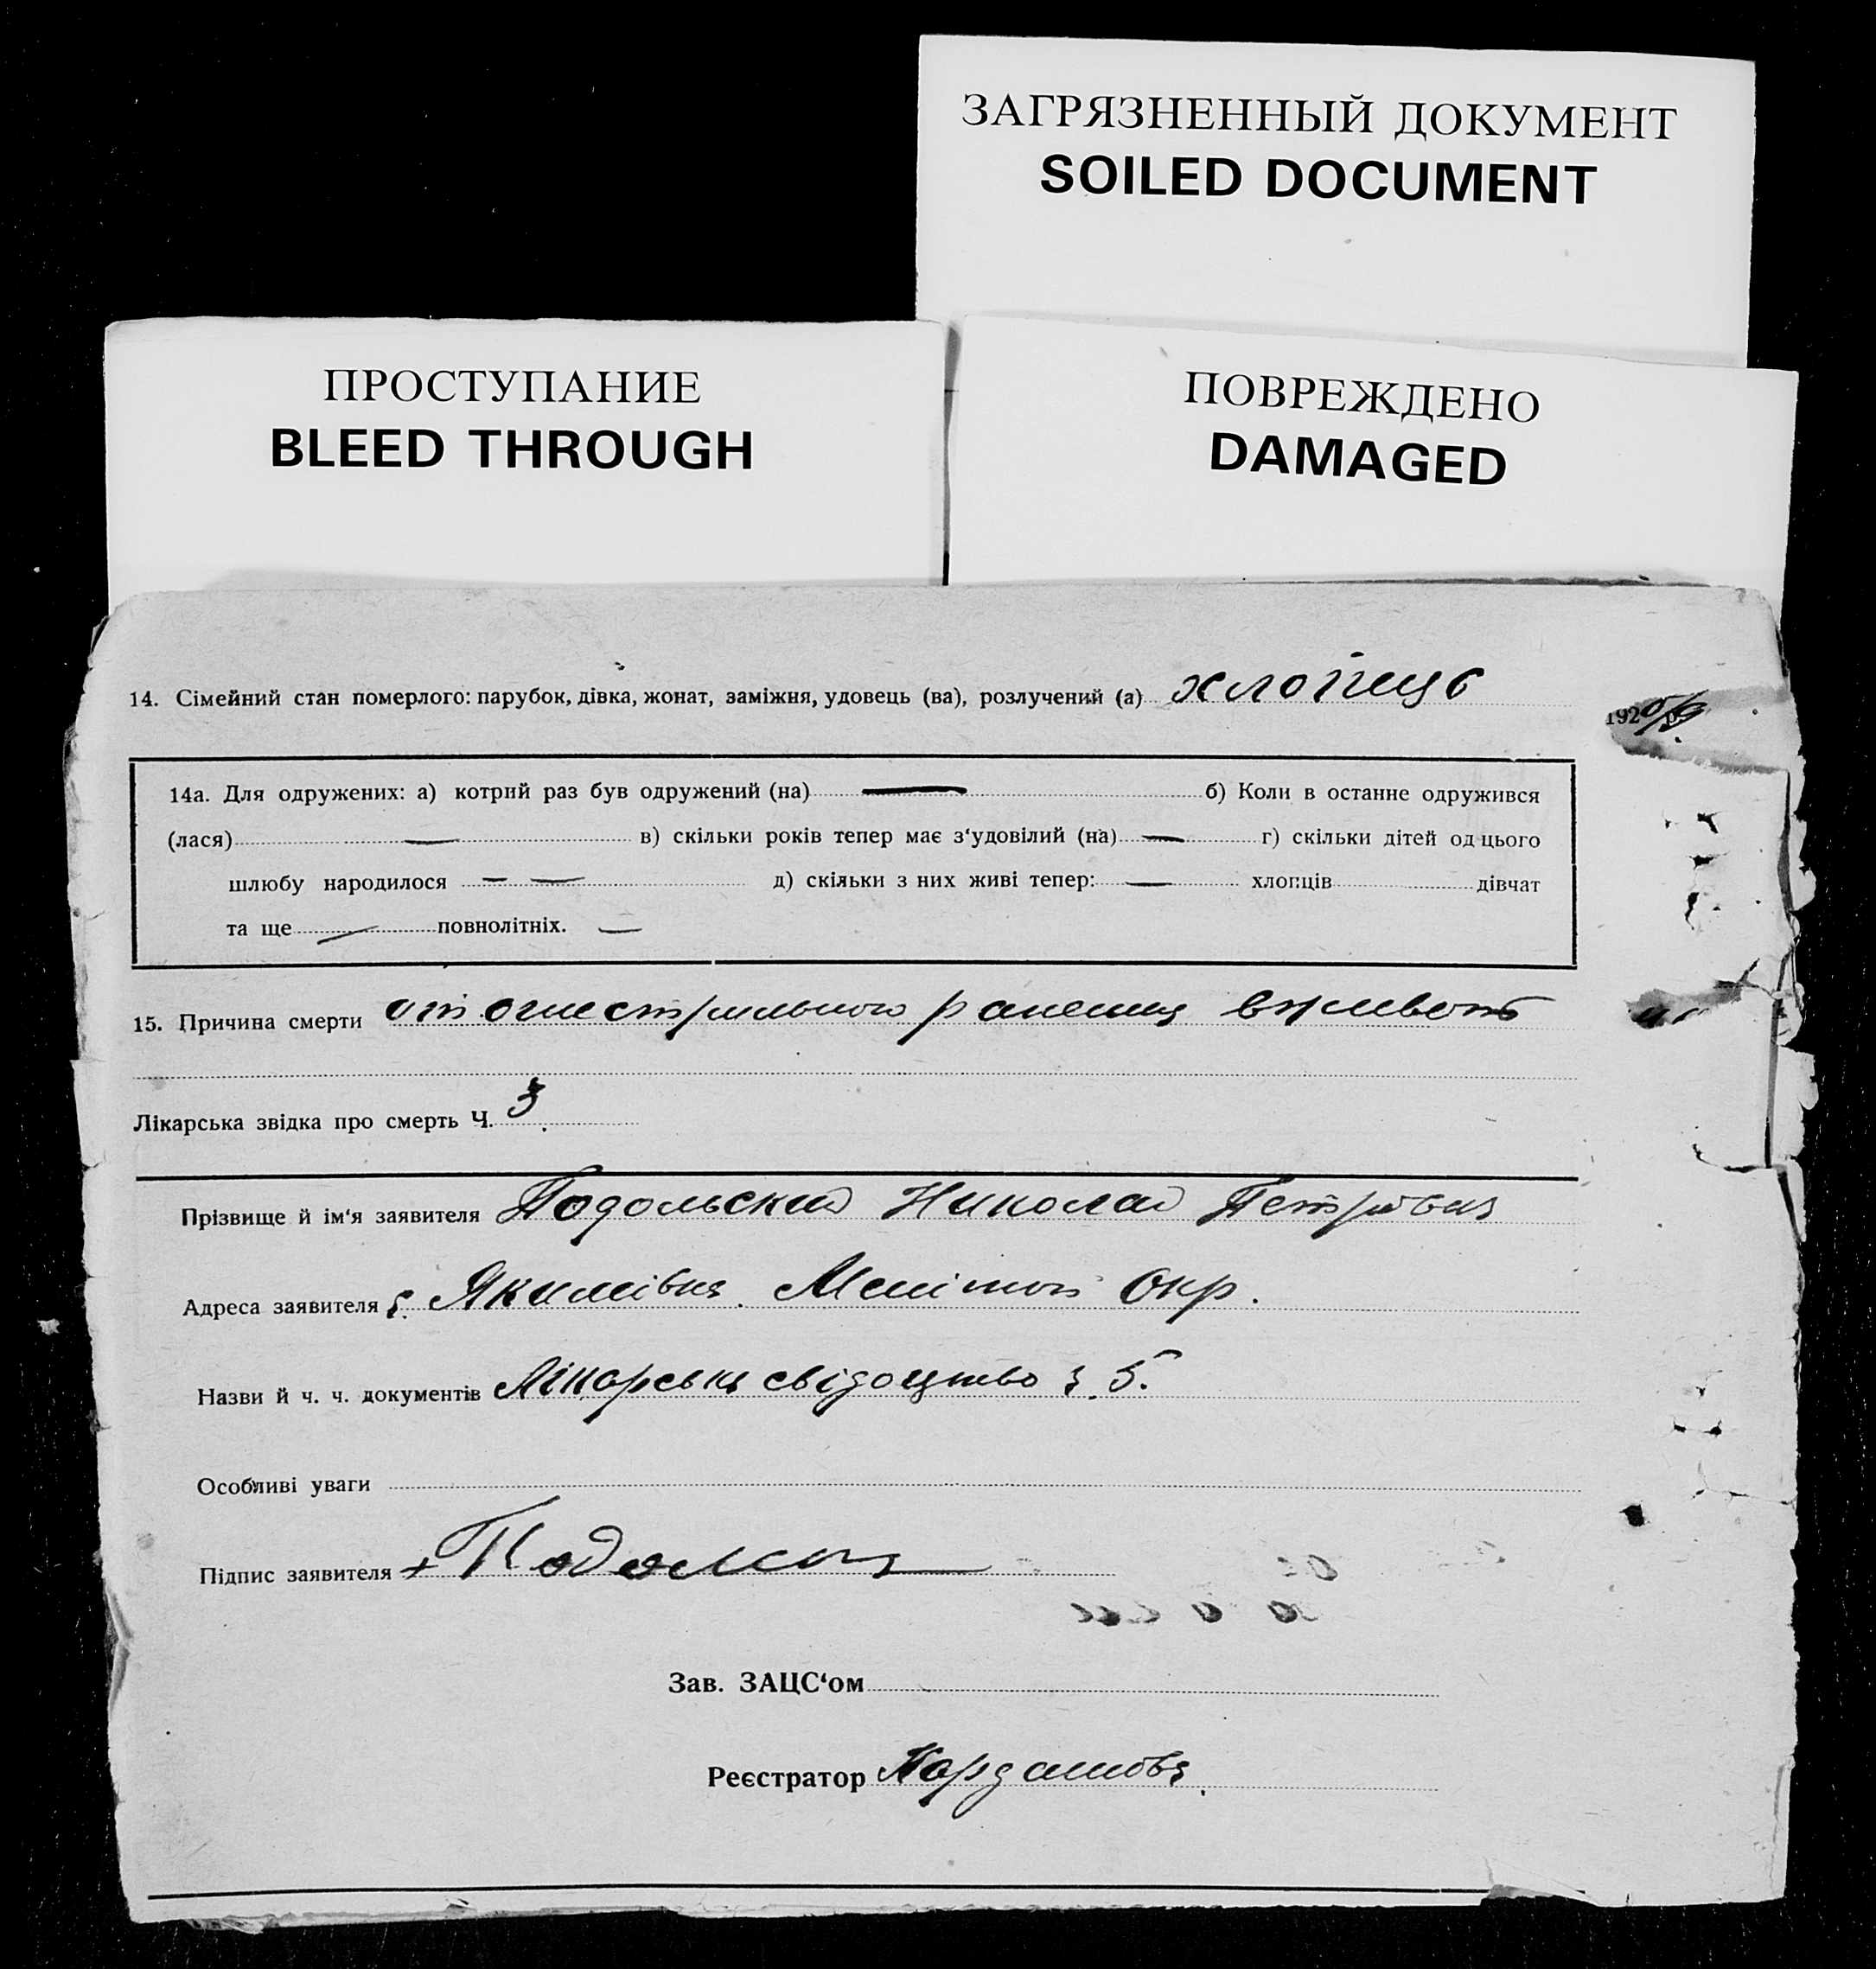 ЗАГРЯЗНЕННЫЙ ДОКУМЕНТ
SOILED DOCUMENT
ПРОСТУПАНИЕ
BLEED THROUGH
ПОВРЕЖДЕНО
DAMAGED
14. Сімейний стан померлого: парубок, дівка, жонат, заміжня, удовець (ва), розлучений (а) хлопець
192
14а. Для одружених: а) котрий раз був одружений (на) — б) Коли в останне одружився
(лася) — в) скільки років тепер має з‘удовілий (на) — г) скільки дітей од цього
шлюбу народилося — — д) скільки з них живі тепер: — хлопців дівчат
та ще — повнолітніх. —
15. Причина смерти от огнестрельного ранения в живот
Лікарська звідка про смерть Ч. 3
Прізвище й ім‘я заявителя Подольский Николай Петрович
Адреса заявителя с. Якимівка Меліт окр.
Назви й ч. ч. документів Лікарська свідоцтво з 5.
Особливі уваги
Підпис заявителя + Подольск
Зав. ЗАЦС‘ом
Реєстратор